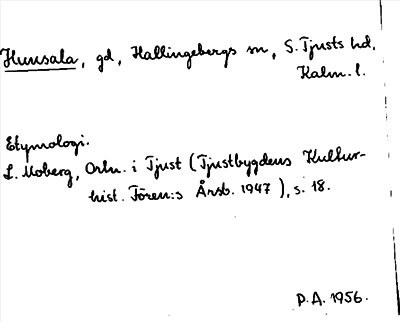 Hunsala, gd, Hallingebergs sn, S. Tjusts hd,
Kalm. l.
Etymologi.
L. Moberg, Ortn. i Tjust (Tjustbygdens Kultur-
hist. Fören:s Årsb. 1947), s. 18.
P.A. 1956.